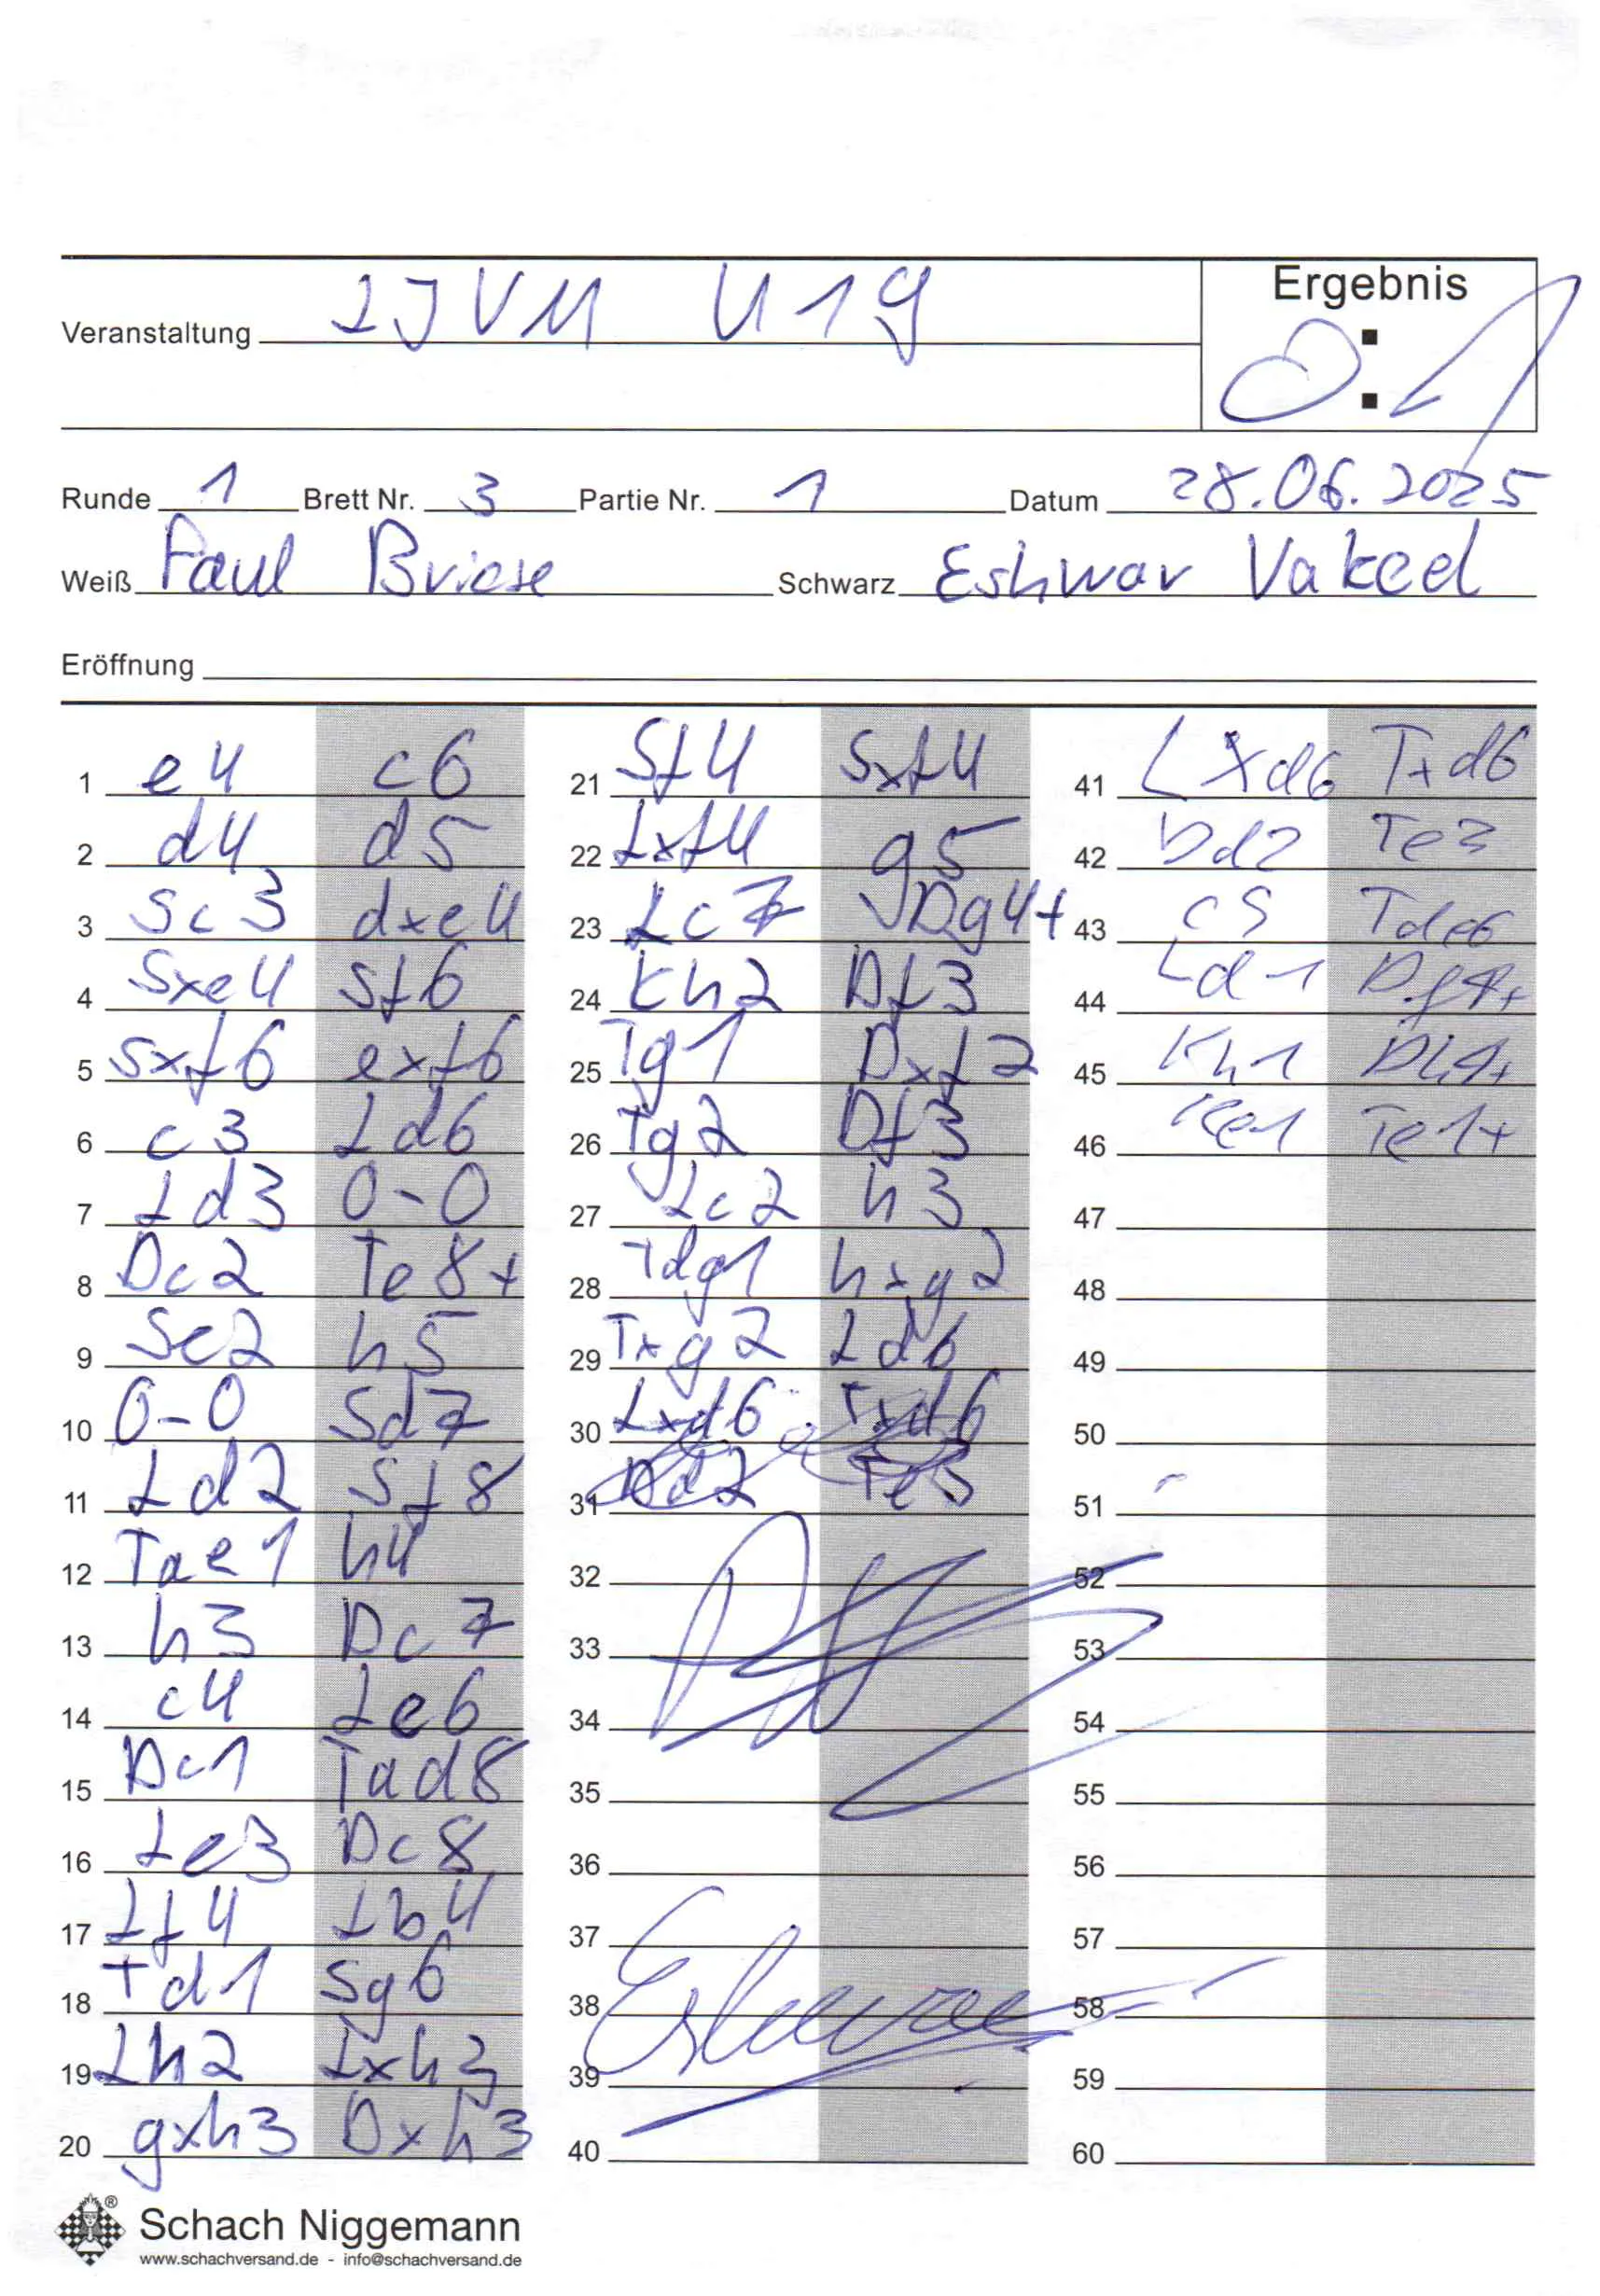 Veranstaltung LJVM U19
Ergebnis
0:1
Runde 1 Brett Nr. 3 Partie Nr. 1 Datum 28.06.2025
Weiß Paul Briese Schwarz Eshwar Vakeel
Eröffnung
1 e4 c6
2 d4 d5
3 Sc3 dxe4
4 Sxe4 Sf6
5 Sxf6 exf6
6 c3 Ld6
7 Ld3 0-0
8 Dc2 Te8+
9 Se2 h5
10 0-0 Sd7
11 Ld2 Sf8
12 Tae1 h4
13 h3 Dc7
14 c4 Le6
15 Dc1 Tad8
16 Le3 Dc8
17 Lf4 Lb4
18 Td1 Sg6
19 Lh2 Lxh3
20 gxh3 Dxh3
21 Sf4 Sxf4
22 Lxf4 g5
23 Lc7 Dg4+
24 Kh2 Df3
25 Tg1 Dxf2
26 Tg2 Df3
27 Lc2 h3
28 Tdg1 hxg2
29 Txg2 Ld6
30 Lxd6 Txd6
31 Dd2 Te3
32
33
34
35
36
37
38
39
40
41 LXd6 Txd6
42 Dd2 Te3
43 c5 Tde6
44 Ld1 Df4+
45 Kh1 Dh4+
46 Te1+
47
48
49
50
51
52
53
54
55
56
57
58
59
60
® Schach Niggemann
www.schachversand.de - info@schachversand.de